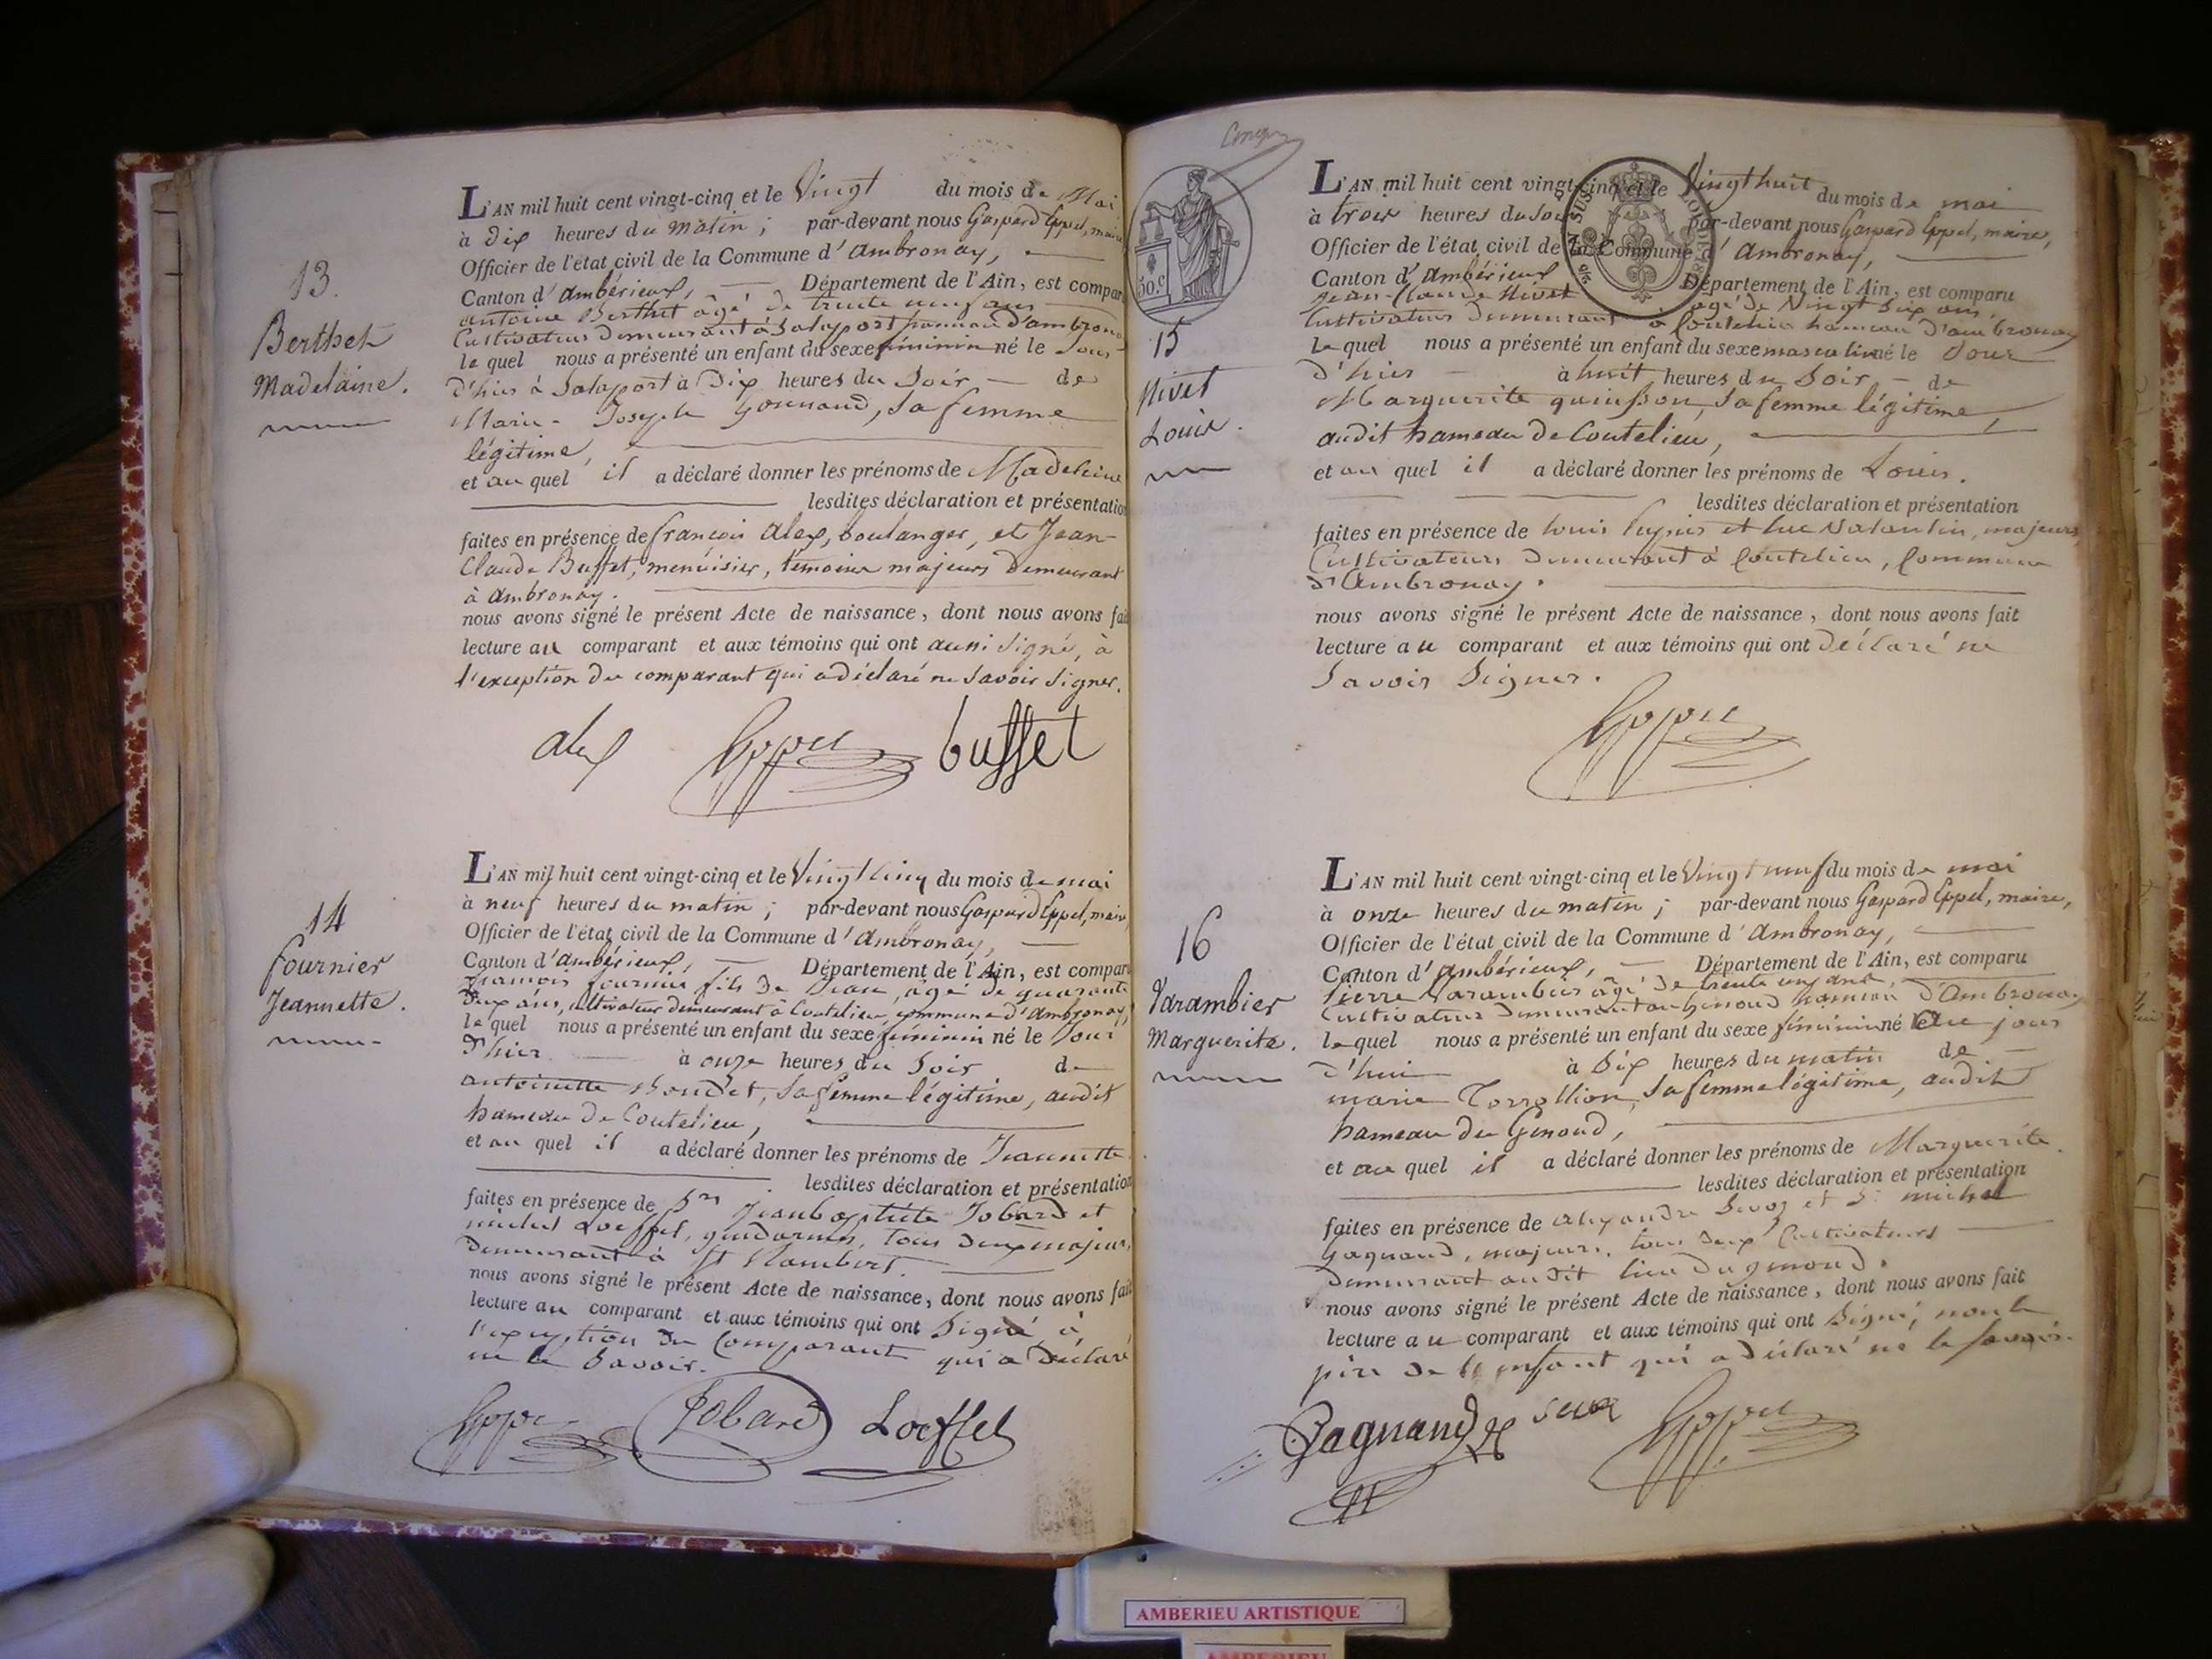 13.
Berthet
Madelaine.
L'AN mil huit cent vingt-cinq et le Vingt du mois de Mai
à dix heures du matin ; par-devant nous Gaspard Eppel, maire
Officier de l'état civil de la Commune d'Ambronay,
Canton d'Ambérieux, Département de l'Ain, est compar
antoine Berthet âgé de trente neuf ans
Cultivateur demeurant à Salaport hameau d'ambrona
le quel nous a présenté un enfant du sexe féminin né le Jour
d'hier à Salaport à Dix heures du Soir de
Marie-Joseph Gonnand, sa femme
légitime,
et au quel il a déclaré donner les prénoms de Madeleine
lesdites déclaration et présentation
faites en présence de françois alex, boulanger, et Jean-
Claude Buffet, menuisier, témoins majeurs demeurant
à ambronay.
nous avons signé le présent Acte de naissance, dont nous avons fait
lecture au comparant et aux témoins qui ont aussi signé, à
l'exception du comparant qui a déclaré ne savoir signer.
alex Eppel buffet
14
fournier
Jeannette.
L'AN mil huit cent vingt-cinq et le Vingt cinq du mois de mai
à neuf heures du matin ; par-devant nous Gaspard Eppel, maire
Officier de l'état civil de la Commune d'Ambronay,
Canton d'Ambérieux, Département de l'Ain, est compar
françois fournier fils de Jean, âgé de quarante
deux ans, cultivateur demeurant à Coutelieu, commune d'Ambronay,
le quel nous a présenté un enfant du sexe féminin né le Jour
d'hier à onze heures du Soir de
antoinette Boudet, sa femme légitime, audit
hameau de Coutelieu,
et au quel il a déclaré donner les prénoms de Jeannette
lesdites déclaration et présentation
faites en présence de Srs Jeanbaptiste Jobard et
michel Loeffel, gendarmes, tous deux majeurs,
demeurant à St Rambert.
nous avons signé le présent Acte de naissance, dont nous avons fait
lecture au comparant et aux témoins qui ont Signé, à
l'exception du Comparant qui a déclaré
ne le Savoir.
Eppel Jobard Loeffel
50 c
15
Nivet
Louis.
L'AN mil huit cent vingt-cinq et le Vingt huit du mois de mai
à trois heures du soir par-devant nous Gaspard Eppel, maire,
Officier de l'état civil de la Commune d'Ambronay,
Canton d'Ambérieux Département de l'Ain, est comparu
Jean-Claude Nivet âgé de Vingt Six ans,
Cultivateur demeurant à Coutelieu hameau d'ambronay
le quel nous a présenté un enfant du sexe masculin né le Jour
d'hier à huit heures du Soir de
Marguerite, sa femme légitime,
audit hameau de Coutelieu,
et au quel il a déclaré donner les prénoms de Louis.
lesdites déclaration et présentation
faites en présence de louis et luc Valentin, majeurs
Cultivateurs demeurant à Coutelieu, Commune
d'Ambronay.
nous avons signé le présent Acte de naissance, dont nous avons fait
lecture au comparant et aux témoins qui ont déclaré ne
Savoir Signer.
Eppel
16
Varambier
Marguerite.
L'AN mil huit cent vingt-cinq et le Vingt neuf du mois de mai
à onze heures du matin ; par-devant nous Gaspard Eppel, maire,
Officier de l'état civil de la Commune d'Ambronay,
Canton d'Ambérieux, Département de l'Ain, est comparu
Pierre Varambier âgé de trente un ans,
Cultivateur demeurant au Genoud hameau d'Ambronay
lequel nous a présenté un enfant du sexe féminin né Ce jour
d'hui à Six heures du matin de
marie Torrollion, sa femme légitime, audit
hameau du Genoud,
et au quel il a déclaré donner les prénoms de Marguerite.
lesdites déclaration et présentation
faites en présence de alexandre et Sr michel
Gagnand, majeurs, tous deux Cultivateurs
demeurant audit lieu du genoud.
nous avons signé le présent Acte de naissance, dont nous avons fait
lecture au comparant et aux témoins qui ont Signé, non le
père de l'enfant qui a déclaré ne le savoir.
Gagnand Eppel
AMBERIEU ARTISTIQUE
AMBERIEU